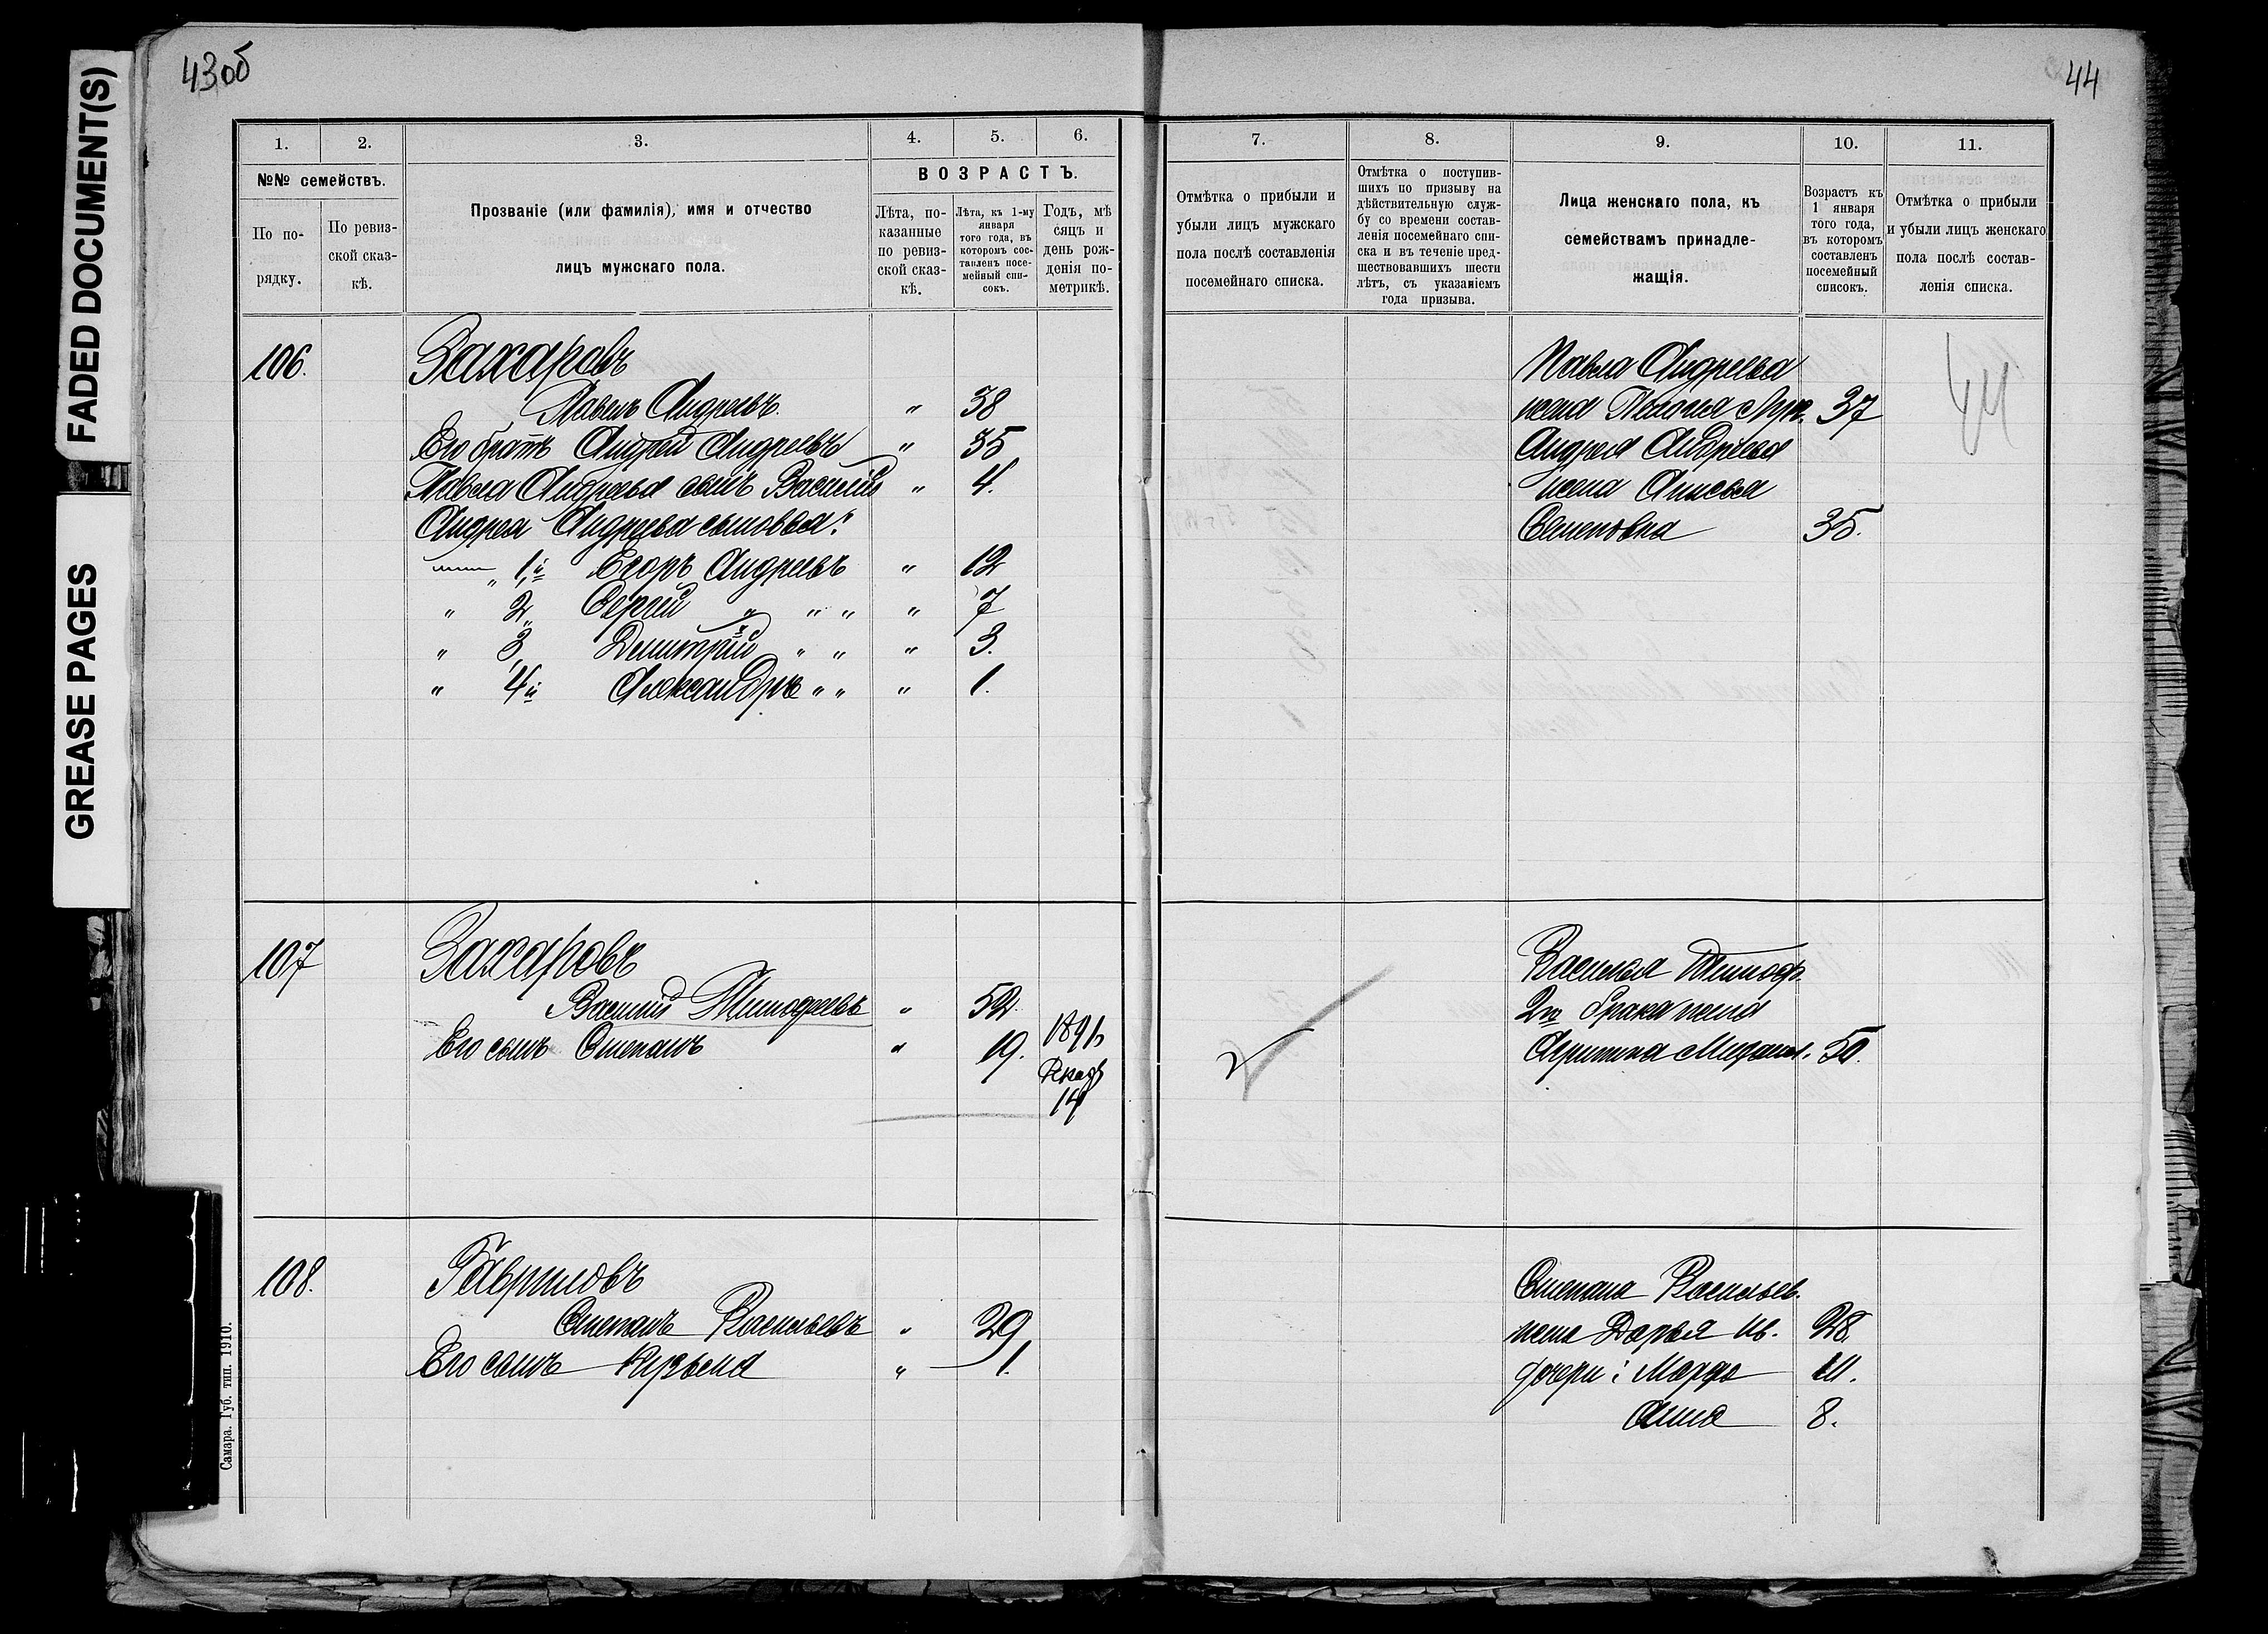 FADED DOCUMENT(S)
GREASE PAGES
43об
1. 2. 3. 4. 5. 6.
№№ семействъ.
По по-
рядку.
По ревиз-
ской сказ-
кѣ.
Прозваніе (или фамилія), имя и отчество
лицъ мужскаго пола.
ВОЗРАСТЪ.
Лѣта, по-
казанные
по ревиз-
ской сказ-
кѣ.
Лѣта, къ 1-му
января
того года, въ
которомъ сос-
тавленъ посе-
мейный спи-
сокъ.
Годъ, мѣ
сяцъ и
день рож-
денія по-
метрикѣ.
106. Захаровъ
Павелъ Андреевъ. " 38
Его братъ Андрей Андреевъ " 35
Павла Андреева сынъ Василій " 4.
Андрея Андреева сыновья:
" 1й Егоръ Андреевъ " 12
" 2" Сергѣй " " " " 7
" 3 Дмитрій " " " 3.
" 4й Александръ " " " 1.
107 Захаровъ
Василій Тимофеевъ " 52
Его сынъ Степанъ " 19. 1891
Декаб
14
108. Гавриловъ
Степанъ Васильевъ " 29
Его сынъ Кузьма " 1.
Самара. Губ. тип. 1910.
44
7. 8. 9. 10. 11.
Отмѣтка о прибыли и
убыли лицъ мужскаго
пола послѣ составленія
посемейнаго списка.
Отмѣтка о поступив-
шихъ по призыву на
дѣйствительную служ-
бу со времени состав-
ленія посемейнаго спи-
ска и въ теченіе пред-
шествовавшихъ шести
лѣтъ, съ указаніемъ
года призыва.
Лица женскаго пола, къ
семействамъ принадле-
жащія.
Возрастъ къ
1 января
того года,
въ которомъ
составленъ
посемейный
списокъ.
Отмѣтка о прибыли
и убыли лицъ женскаго
пола послѣ состав-
ленія списка.
Павла Андреева
жена Пелагея 37
Андрея Андреева
жена Анисья
Семеновна 35.
44
Василья Тимоф.
2го брака жена
50.
Степана Васильев.
жена Дарья Ив. 28
дочери: Марфа 11.
Анна 8.